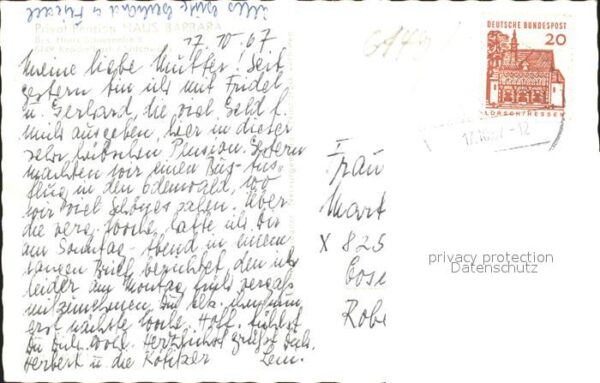 alles Gute Gerhard u. Friedel
Privat-Pension HAUS BARBARA
17.10.67
Meine liebe Mutter! Seit
gestern bin ich mit Fridel
u. Gerhard, die viel Geld f.
mich ausgeben, hier in dieser
sehr hübschen Pension. Gestern
machten wir einen Bus-Aus-
flug in den Odenwald, wo
wir viel Schönes sahen. Über
die verg. Woche hatte ich Dir
am Sonntag-Abend in einem
langen Brief berichtet, den ich
leider am Montag früh vergaß
mitzunehmen. Du
erst nächste Woche. Hoff. fühlst
Du Dich wohl. Herzlichst grüßt Dich,
Herbert u. die Kötitzer
DEUTSCHE BUNDESPOST
20
LORSCH/HESSEN
-12
Frau
Mart
X 825
Cos
Robe
privacy protection
Datenschutz